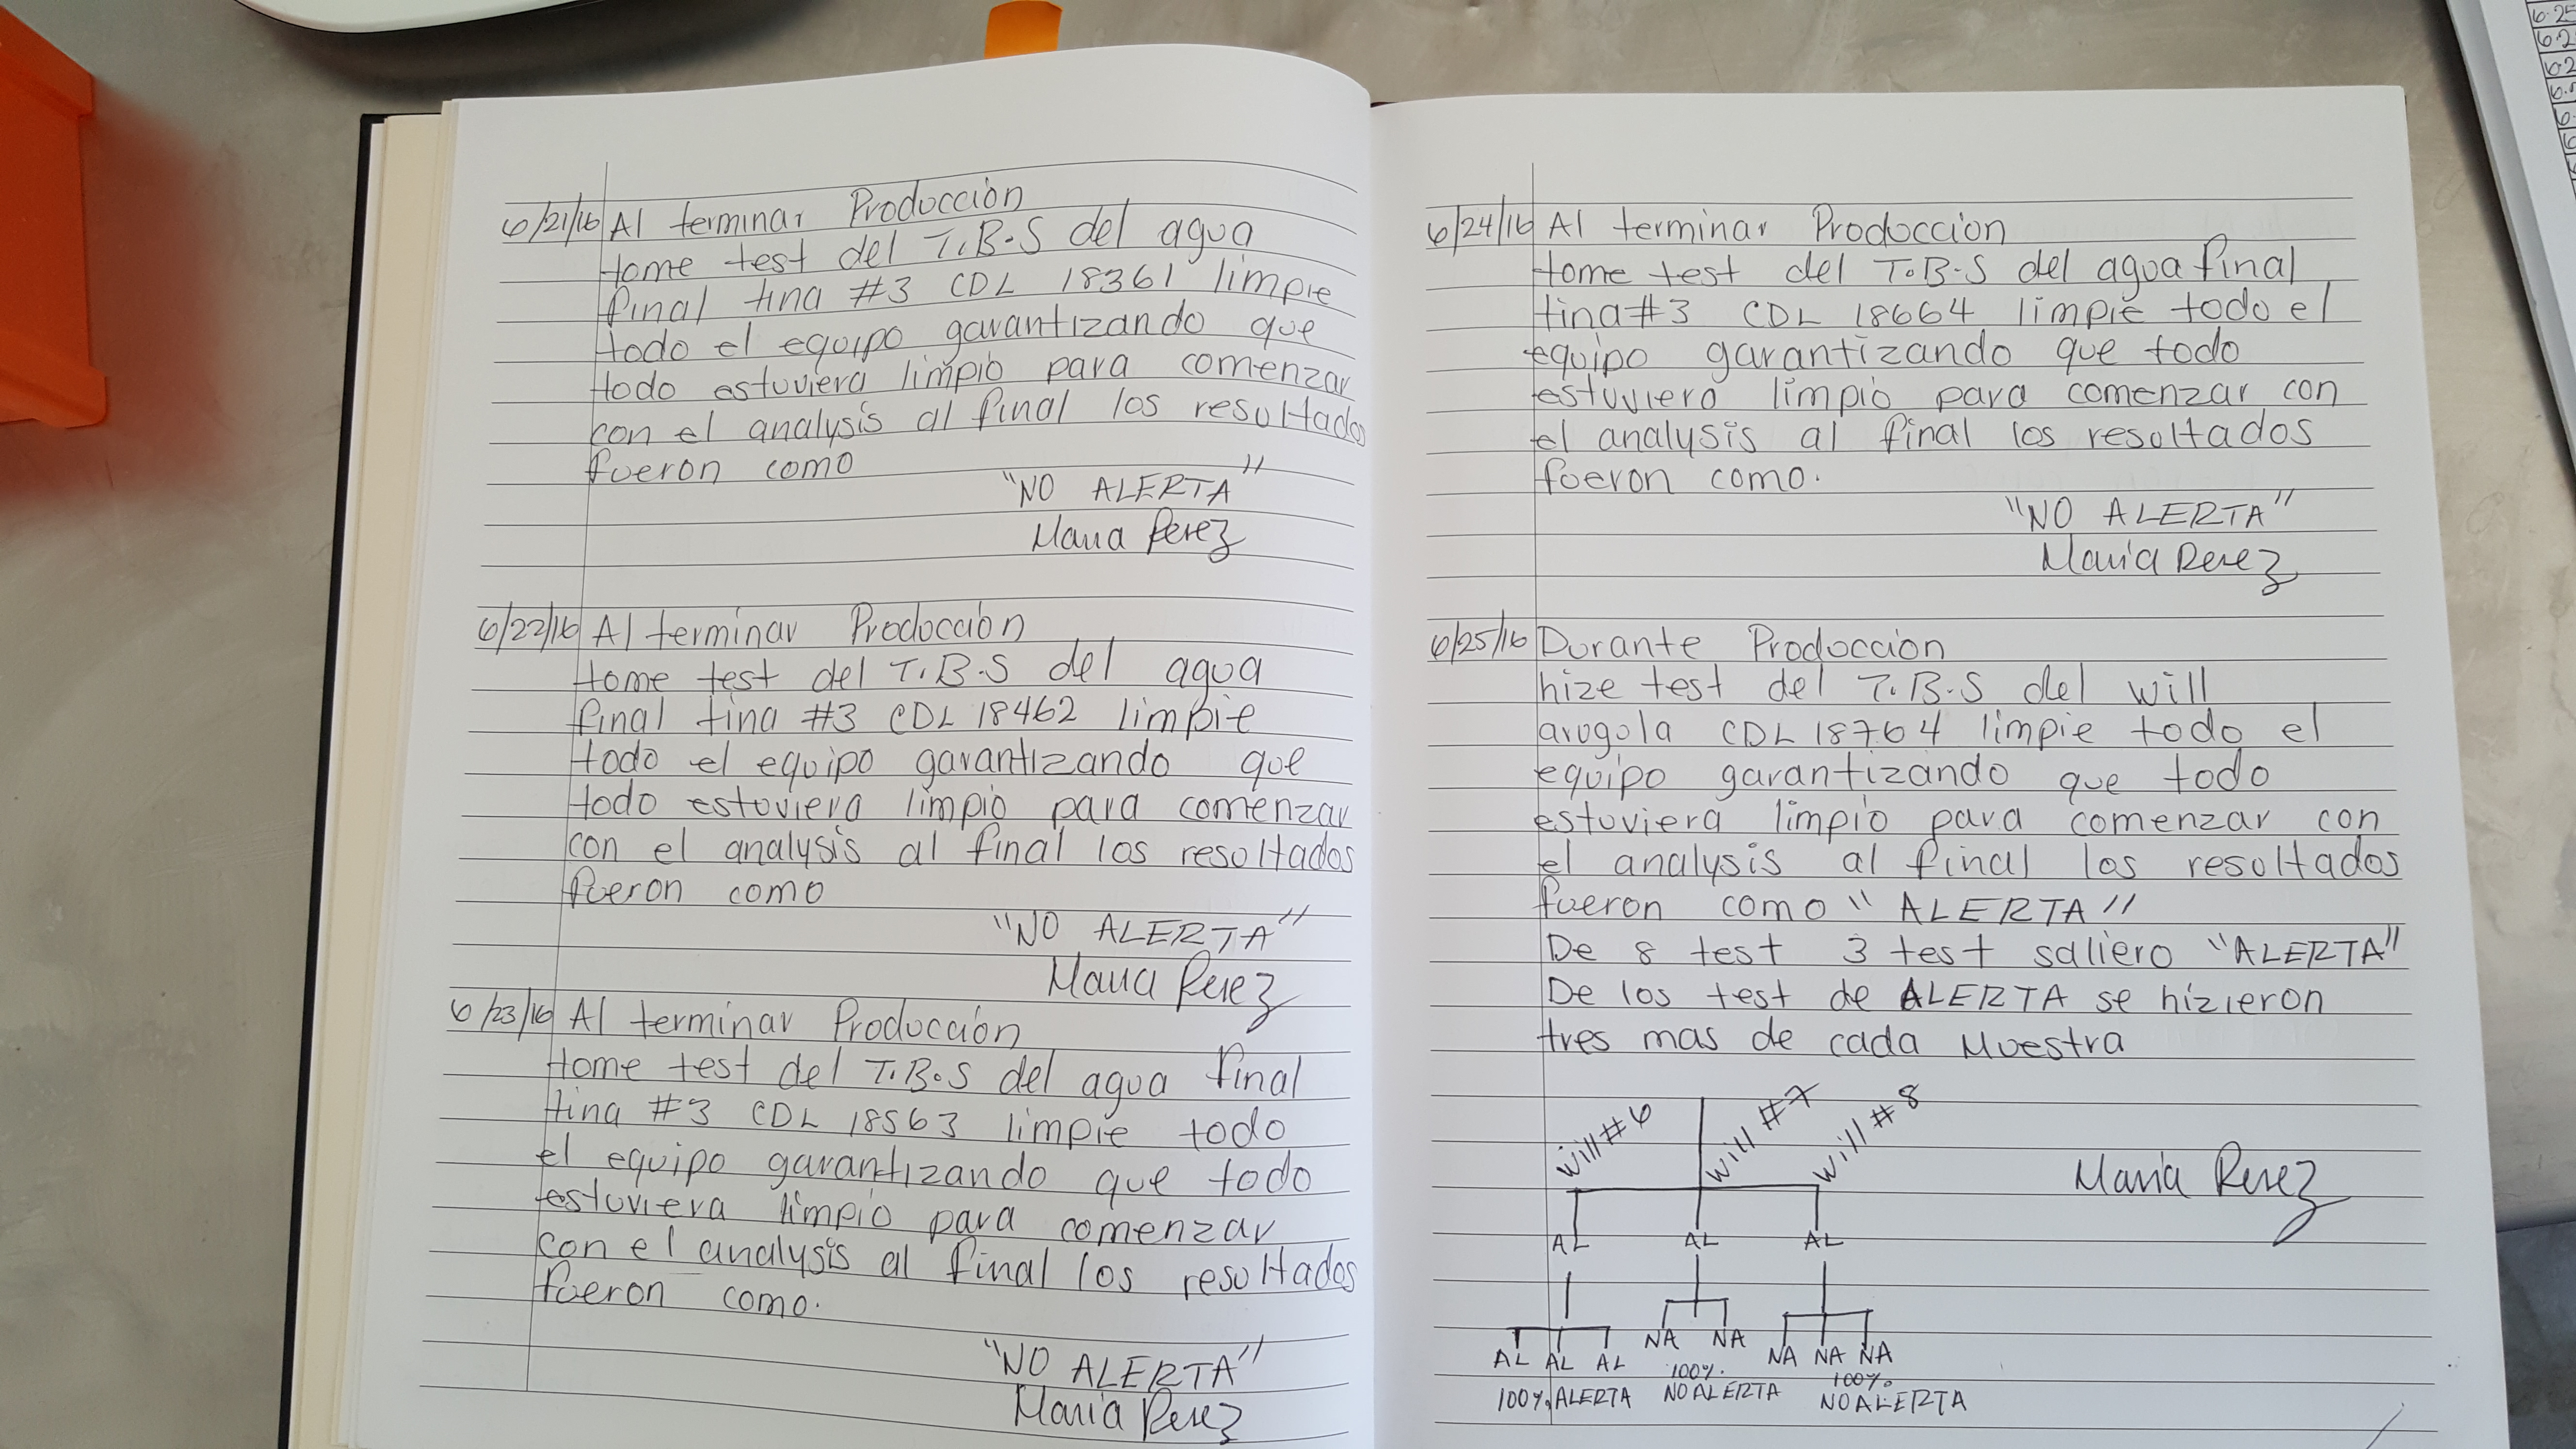 6/21/16 Al terminar Producción
tome test del T.B.S del agua
final tina #3 CDL 18361 limpie
todo el equipo garantizando que
todo estuviera limpio para comenzar
con el analysis al final los resultados
fueron como
"NO ALERTA"
Maria Perez
6/22/16 Al terminar Producción
tome test del T.B.S del agua
final tina #3 CDL 18462 limpie
todo el equipo garantizando que
todo estuviera limpio para comenzar
con el analysis al final los resultados
fueron como
"NO ALERTA"
Maria Perez
6/23/16 Al terminar Producción
tome test del T.B.S del agua final
tina #3 CDL 18563 limpie todo
el equipo garantizando que todo
estuviera limpio para comenzar
con el analysis al final los resultados
fueron como.
"NO ALERTA"
Maria Perez
6/24/16 Al terminar Produccion
tome test del T.B.S del agua final
tina #3 CDL 18664 limpie todo el
equipo garantizando que todo
estuviero limpio para comenzar con
el analysis al final los resultados
fueron como.
"NO ALERTA"
Maria Perez
6/25/16 Durante Produccion
hize test del T.B.S del will
arugola CDL 18764 limpie todo el
equipo garantizando que todo
estuviera limpio para comenzar con
el analysis al final los resultados
fueron como "ALERTA"
De 8 test 3 test saliero "ALERTA"
De los test de ALERTA se hizieron
tres mas de cada Muestra
will #6 will #7 will #8
Maria Perez
AL AL AL
AL AL AL NA NA NA NA NA
100% ALERTA 100% NO ALERTA 100% NO ALERTA
6.25